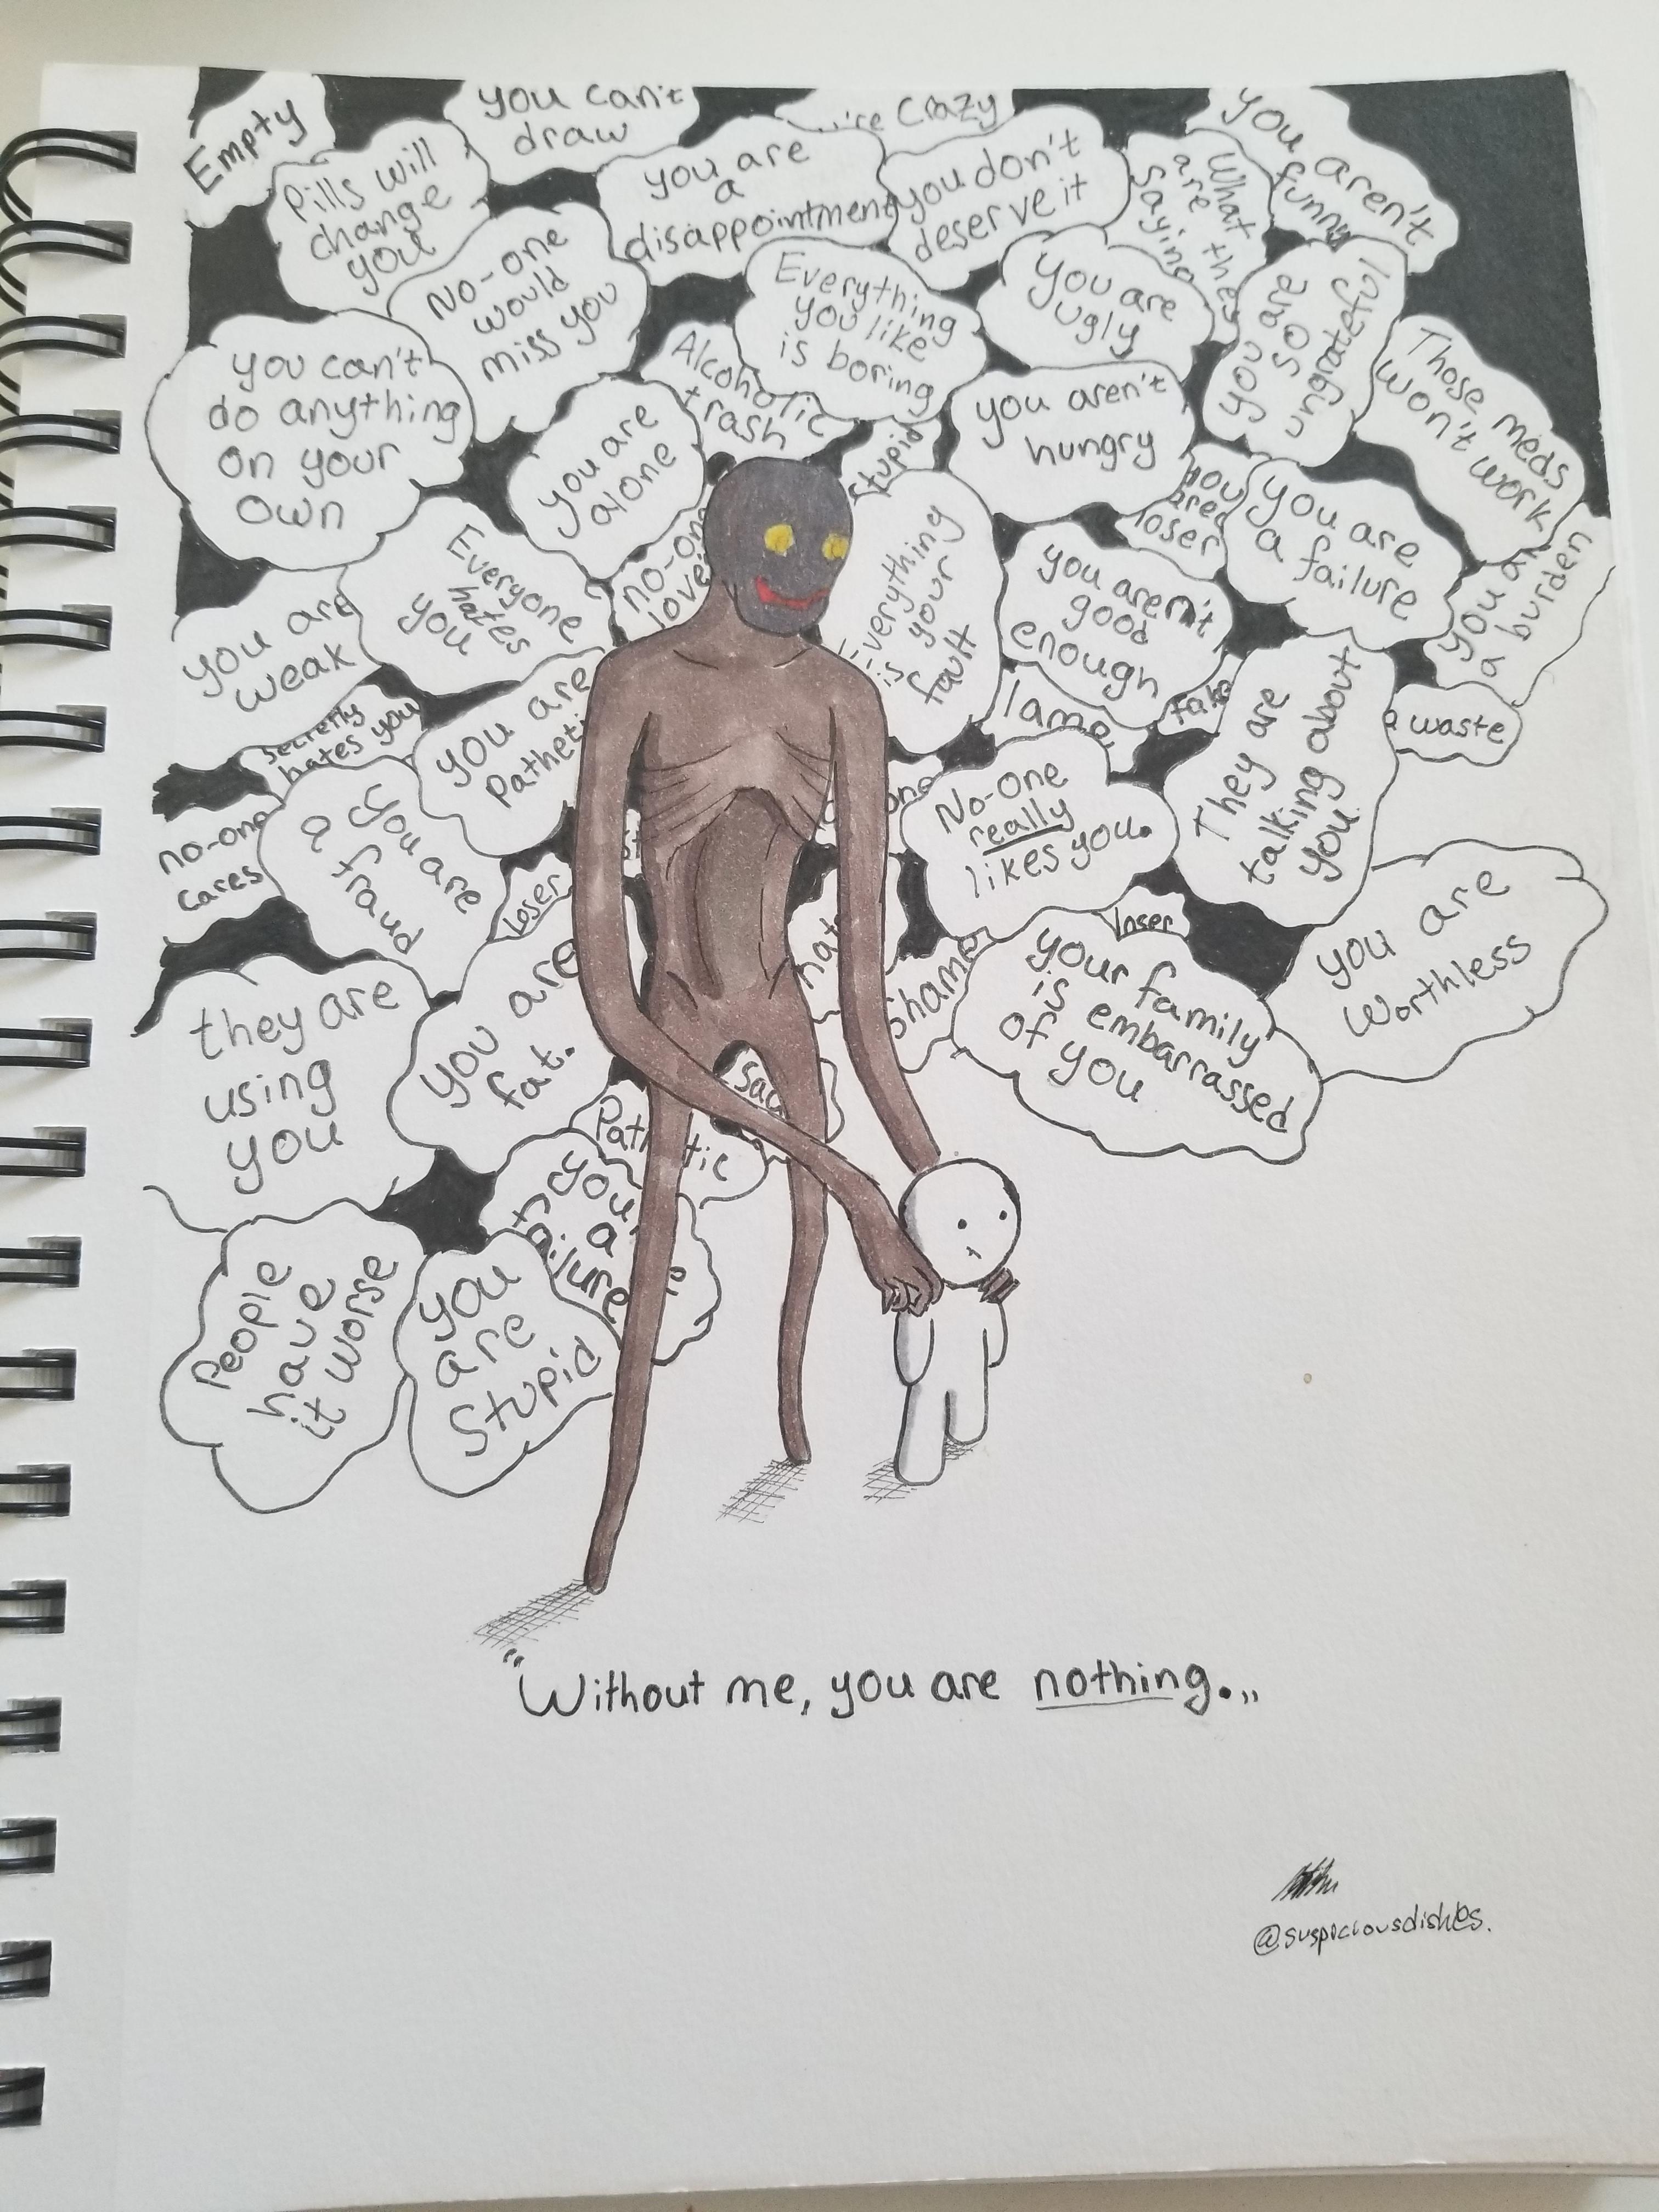 Empty
Pills will
change
you
you can't
draw
you are
a
disappointment
Crazy
you don't
deserve it
What
are they
saying
you aren't
funny
No-one
would
miss you
Everything
you like
is boring
you are
ugly
you are
so
ungrateful
Those meds
won't work
you can't
do anything
on your
own
you are
alone
Alcoholic
trash
Stupid
you aren't
hungry
you
are a
loser
you are
a failure
you a
a burden
you are
weak
Everyone
hates
you
no-one
love
Everything
is your
fault
you aren't
good
enough
lame
fake
They are
talking about
you
a waste
secretly
hates you
you are
Patheti
no-one
cares
you are
a fraud
loser
one
No-One
really
likes you.
loser
hat
Shame
your family
is embarrassed
of you
you are
worthless
they are
using
you
you are
fat.
People
have
it worse
you are
Stupid
you
a
failure
"Without me, you are nothing..."
@suspiciousdishes.